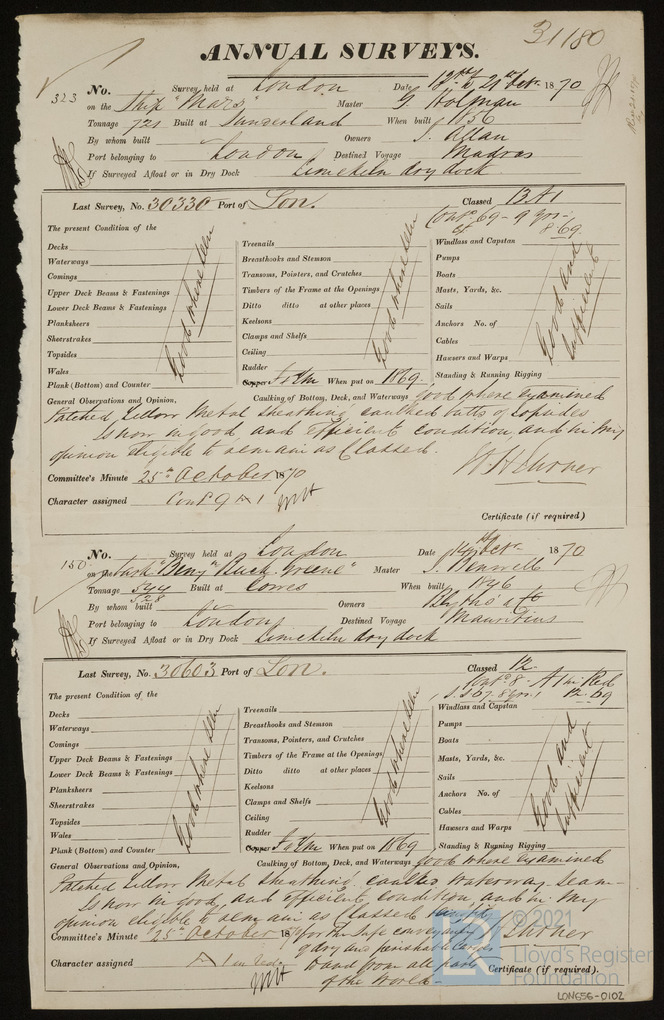 31180
ANNUAL SURVEYS.
323 No. Survey held at London Date 21st Octr. 1870
on the Ship "Mars" Master G Holman
Tonnage 721 Built at Sunderland When built 1856
By whom built Owners J. Allan
Port belonging to London Destined Voyage Madras
If Surveyed Afloat or in Dry Dock Limekiln dry dock
Last Survey, No. 30330 Port of Lon. Classed 13 A1
Contd. 69 - 9 yrs -
8.69
The present Condition of the
Decks
Waterways
Comings
Upper Deck Beams & Fastenings
Lower Deck Beams & Fastenings
Planksheers
Sheerstrakes
Topsides
Wales
Plank (Bottom) and Counter
Good where seen
Treenails
Breasthooks and Stemson
Transoms, Pointers, and Crutches
Timbers of the Frame at the Openings
Ditto ditto at other places
Keelsons
Clamps and Shelfs
Ceiling
Rudder
Copper When put on 1869
Good where seen
Windlass and Capstan
Pumps
Boats
Masts, Yards, &c.
Sails
Anchors No. of
Cables
Hawsers and Warps
Standing & Running Rigging
Good and
Sufficient
General Observations and Opinion, Caulking of Bottom, Deck, and Waterways good where examined
Patched Yellow Metal sheathing caulked butts of topsides
Is now in good and efficient condition, and in my
opinion eligible to remain as Classed.
Committee's Minute 25th October 1870
Character assigned Contd 9 A 1
Certificate (if required)
150 No. Survey held at London Date 14th Octr. 1870
on the Bark "Beny" Buck Greene" Master J.
Tonnage 544 Built at Cowes When built 1846
528
By whom built Owners Blyths & Co
Port belonging to London Destined Voyage Mauritius
If Surveyed Afloat or in Dry Dock Limekiln dry dock
Last Survey, No. 30603 Port of Lon. Classed 12
Contd. 8 - A1 in Red
S.S 67. 8 yrs. 12.69
The present Condition of the
Decks
Waterways
Comings
Upper Deck Beams & Fastenings
Lower Deck Beams & Fastenings
Planksheers
Sheerstrakes
Topsides
Wales
Plank (Bottom) and Counter
Good where seen
Treenails
Breasthooks and Stemson
Transoms, Pointers, and Crutches
Timbers of the Frame at the Openings
Ditto ditto at other places
Keelsons
Clamps and Shelfs
Ceiling
Rudder
Copper When put on 1869
Good where seen
Windlass and Capstan
Pumps
Boats
Masts, Yards, &c.
Sails
Anchors No. of
Cables
Hawsers and Warps
Standing & Running Rigging
Good and
Sufficient
General Observations and Opinion, Caulking of Bottom, Deck, and Waterways good where examined
Patched Yellow Metal sheathing caulked waterway seam -
Is now in good, and efficient condition, and in my
opinion eligible to remain as Classed
Committee's Minute 25th October 1870 for the safe conveyance
of dry and perishable Cargoes
Character assigned A 1 in Red to and from all parts Certificate (if required).
of the World -
© 2021
Lloyd's Register
Foundation
LON656-0102